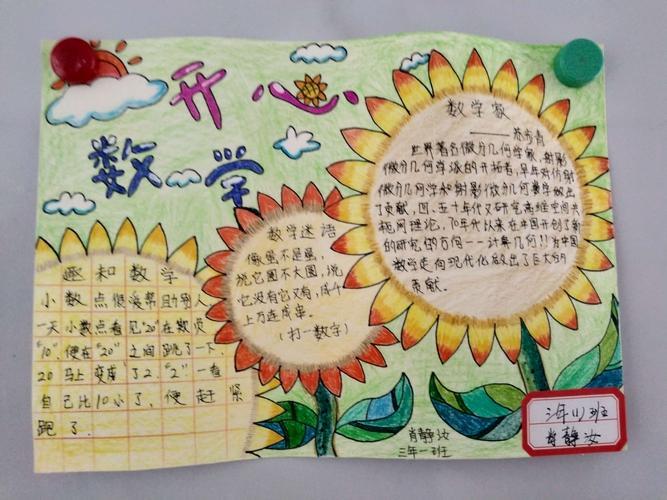 开心
数学
趣和数学
小数点很爱帮助别人
一天小数点看见"20"在欺负
"10",便在"20"之间跳了一下,
20马上变成了2."2"一看
自己比10小了,便赶紧
跑了.
数学迷语
像蛋不是蛋,
说它圆不大圆,说
它没有它又有,成千
上万连成串。
(打一数字)
数学家
——苏步青
世界著名微分几何学家,射影
微分几何学派的开拓者,早年对仿射
微分几何学和射影微分几何学做出
了贡献,四、五十年代又研究高维空间共
轭网理论,70年代以来在中国开创了新
的研究方向——计算几何!!为中国
数学走向现代化做出了巨大的
贡献.
肖静汝
三年一班
三年(1)班
肖静汝